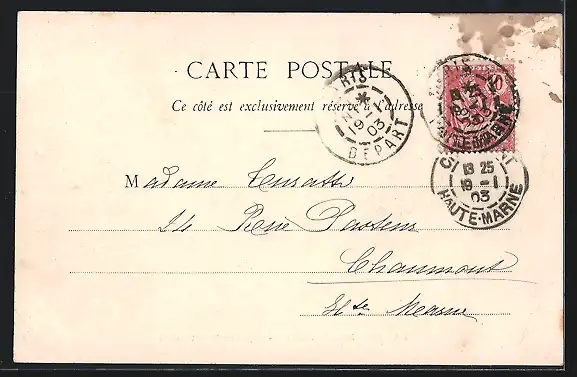 CARTE POSTALE
Ce côté est exclusivement réservé à l'adresse
PARIS
19 03
DÉPART
10
13 25
19 -1
03
HAUTE-MARNE
Madame
24 Rue Pasteur
Chaumont
Hte Marne